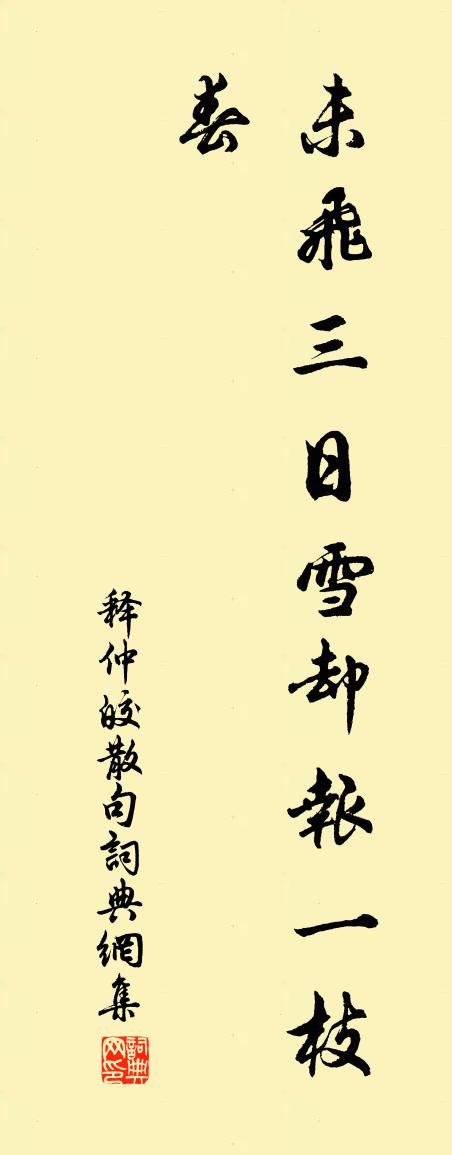 未飛三日雪却報一枝
春
释仲皎散句詞典網集
詞典
网印